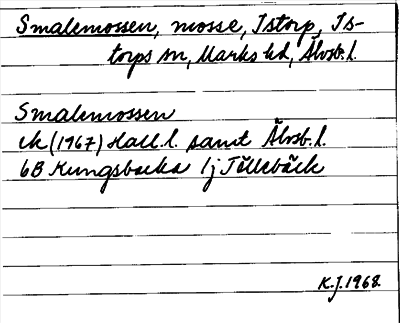 Smalemossen, mosse, Istorp, Is-
torps sn, Marks hd, Älvsb. l.
Smalemossen
ek (1967) Hall. l. samt Älvsb. l.
6B Kungsbacka 1j Tällebäck
K.J. 1968.